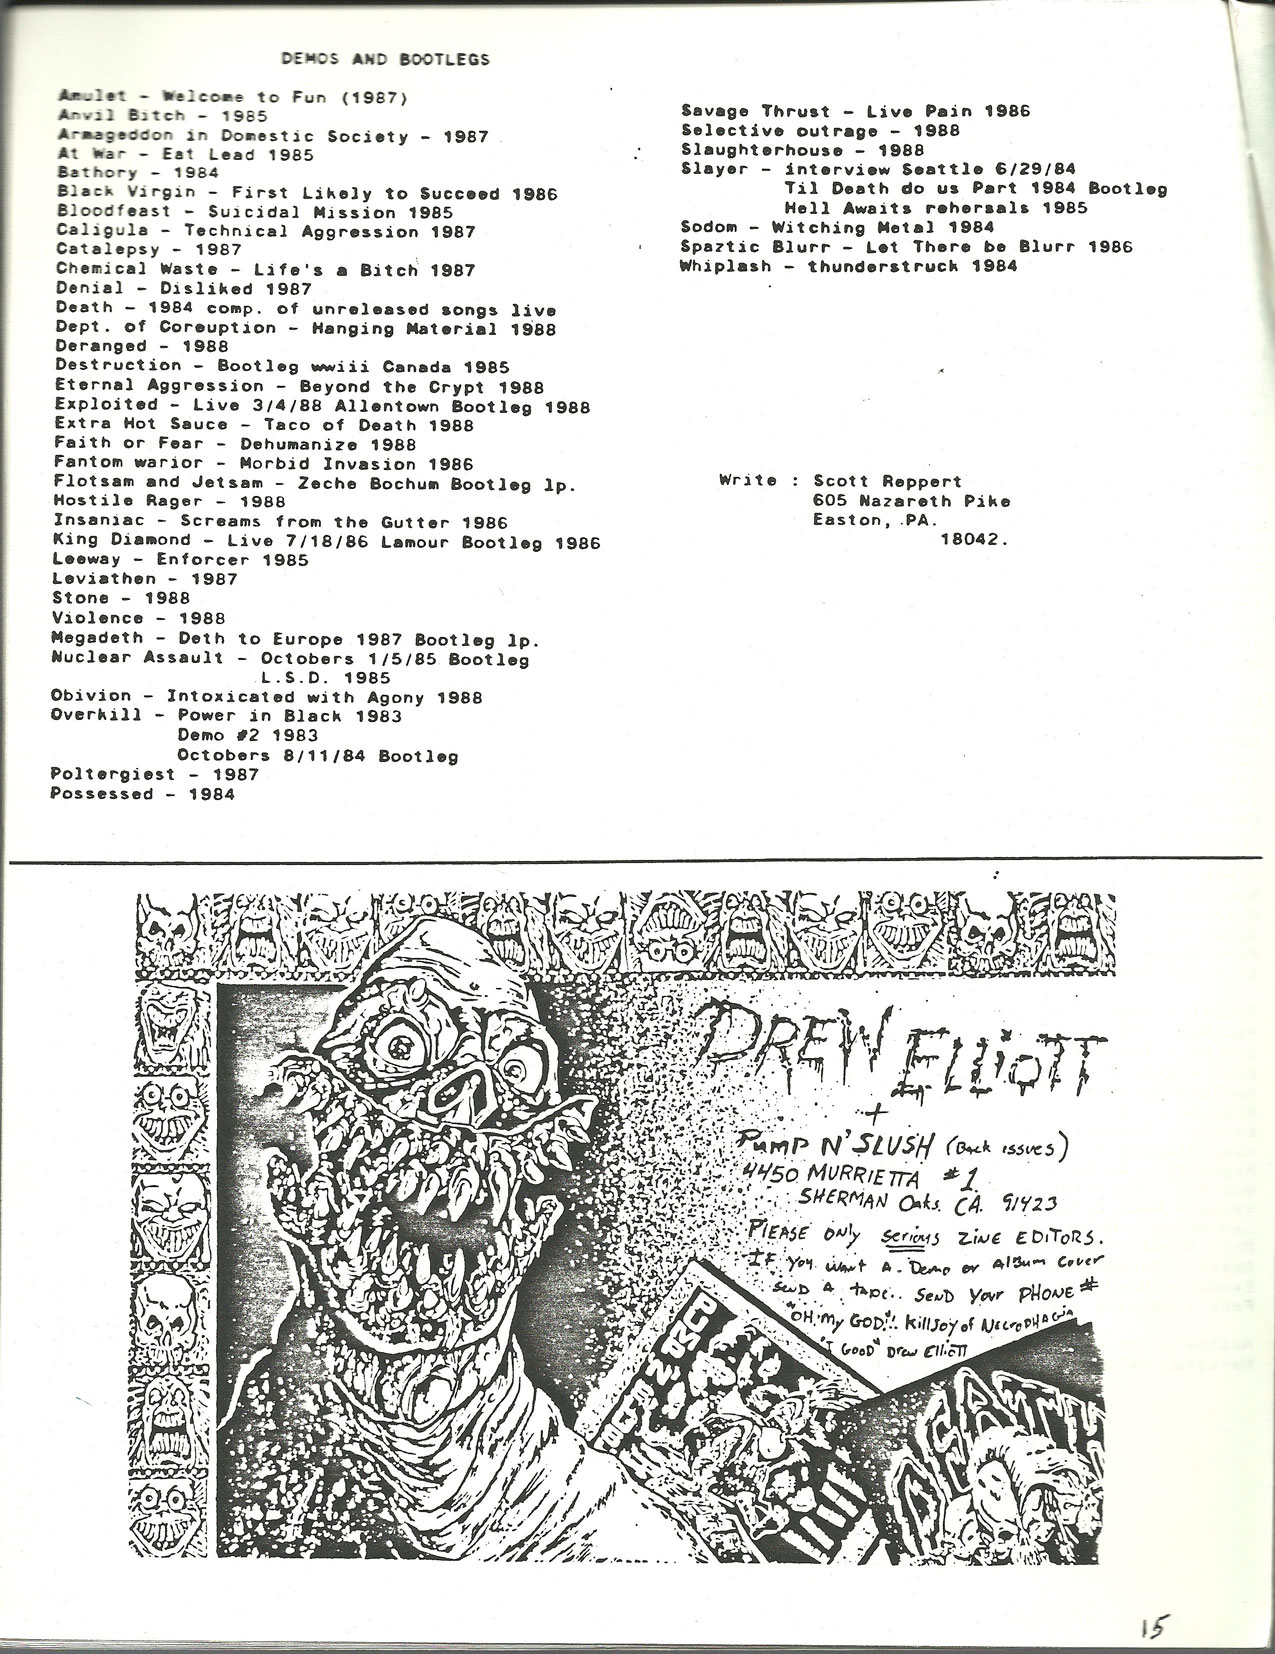 DEMOS AND BOOTLEGS
Amulet - Welcome to Fun (1987)
Anvil Bitch - 1985
Armageddon in Domestic Society - 1987
At War - Eat Lead 1985
Bathory - 1984
Black Virgin - First Likely to Succeed 1986
Bloodfeast - Suicidal Mission 1985
Caligula - Technical Aggression 1987
Catalepsy - 1987
Chemical Waste - Life's a Bitch 1987
Denial - Disliked 1987
Death - 1984 comp. of unreleased songs live
Dept. of Coreuption - Hanging Material 1988
Deranged - 1988
Destruction - Bootleg wwiii Canada 1985
Eternal Aggression - Beyond the Crypt 1988
Exploited - Live 3/4/88 Allentown Bootleg 1988
Extra Hot Sauce - Taco of Death 1988
Faith or Fear - Dehumanize 1988
Fantom warior - Morbid Invasion 1986
Flotsam and Jetsam - Zeche Bochum Bootleg lp.
Hostile Rager - 1988
Insaniac - Screams from the Gutter 1986
King Diamond - Live 7/18/86 Lamour Bootleg 1986
Leeway - Enforcer 1985
Leviathen - 1987
Stone - 1988
Violence - 1988
Megadeth - Deth to Europe 1987 Bootleg lp.
Nuclear Assault - Octobers 1/5/85 Bootleg
L.S.D. 1985
Obivion - Intoxicated with Agony 1988
Overkill - Power in Black 1983
Demo #2 1983
Octobers 8/11/84 Bootleg
Poltergiest - 1987
Possessed - 1984
Savage Thrust - Live Pain 1986
Selective outrage - 1988
Slaughterhouse - 1988
Slayer - interview Seattle 6/29/84
Til Death do us Part 1984 Bootleg
Hell Awaits rehersals 1985
Sodom - Witching Metal 1984
Spaztic Blurr - Let There be Blurr 1986
Whiplash - thunderstruck 1984
Write : Scott Reppert
605 Nazareth Pike
Easton, PA.
18042.
DREW ELLIOTT
+
PUMP N' SLUSH (Back issues)
4450 MURRIETTA #1
SHERMAN Oaks. CA. 91423
PLEASE ONLY serious ZINE EDITORS.
IF you want A. Demo or Album Cover
SEND A tape.. SEND Your PHONE #
"OH. My GOD"!!. Killjoy of NECROPHAGIA
"I GOOD" Drew Elliott
DEATH
15